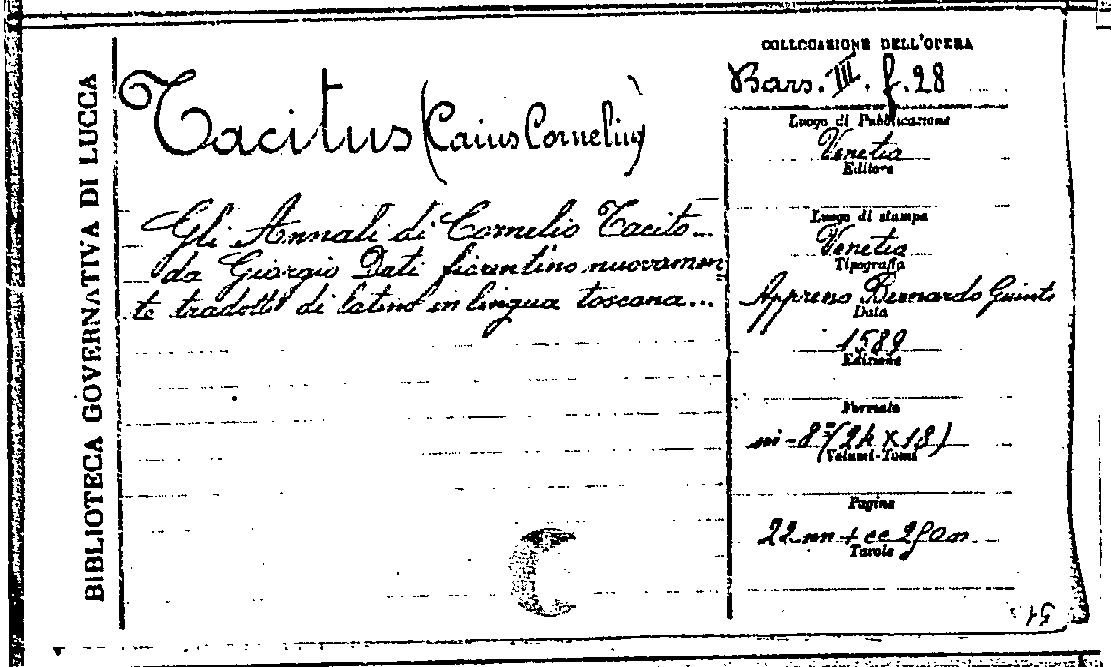 BIBLIOTECA GOVERNATIVA DI LUCCA
Tacitus (Caius Cornelius)
Gli Annali di Cornelio Tacito...
da Giorgio Dati fiorentino nuovamen
te tradotti di latino in lingua toscana...
COLLOCAZIONE DELL'OPERA
Bars. III. f. 28
Luogo di Pubblicazione
Venetia
Editore
Luogo di stampa
Venetia
Tipografia
Appreso Bernardo Giunti
Data
1589
Edizione
Formato
in-8° (24 X 18)
Volumi-Tomi
Pagine
22 nn + cc
Tavole